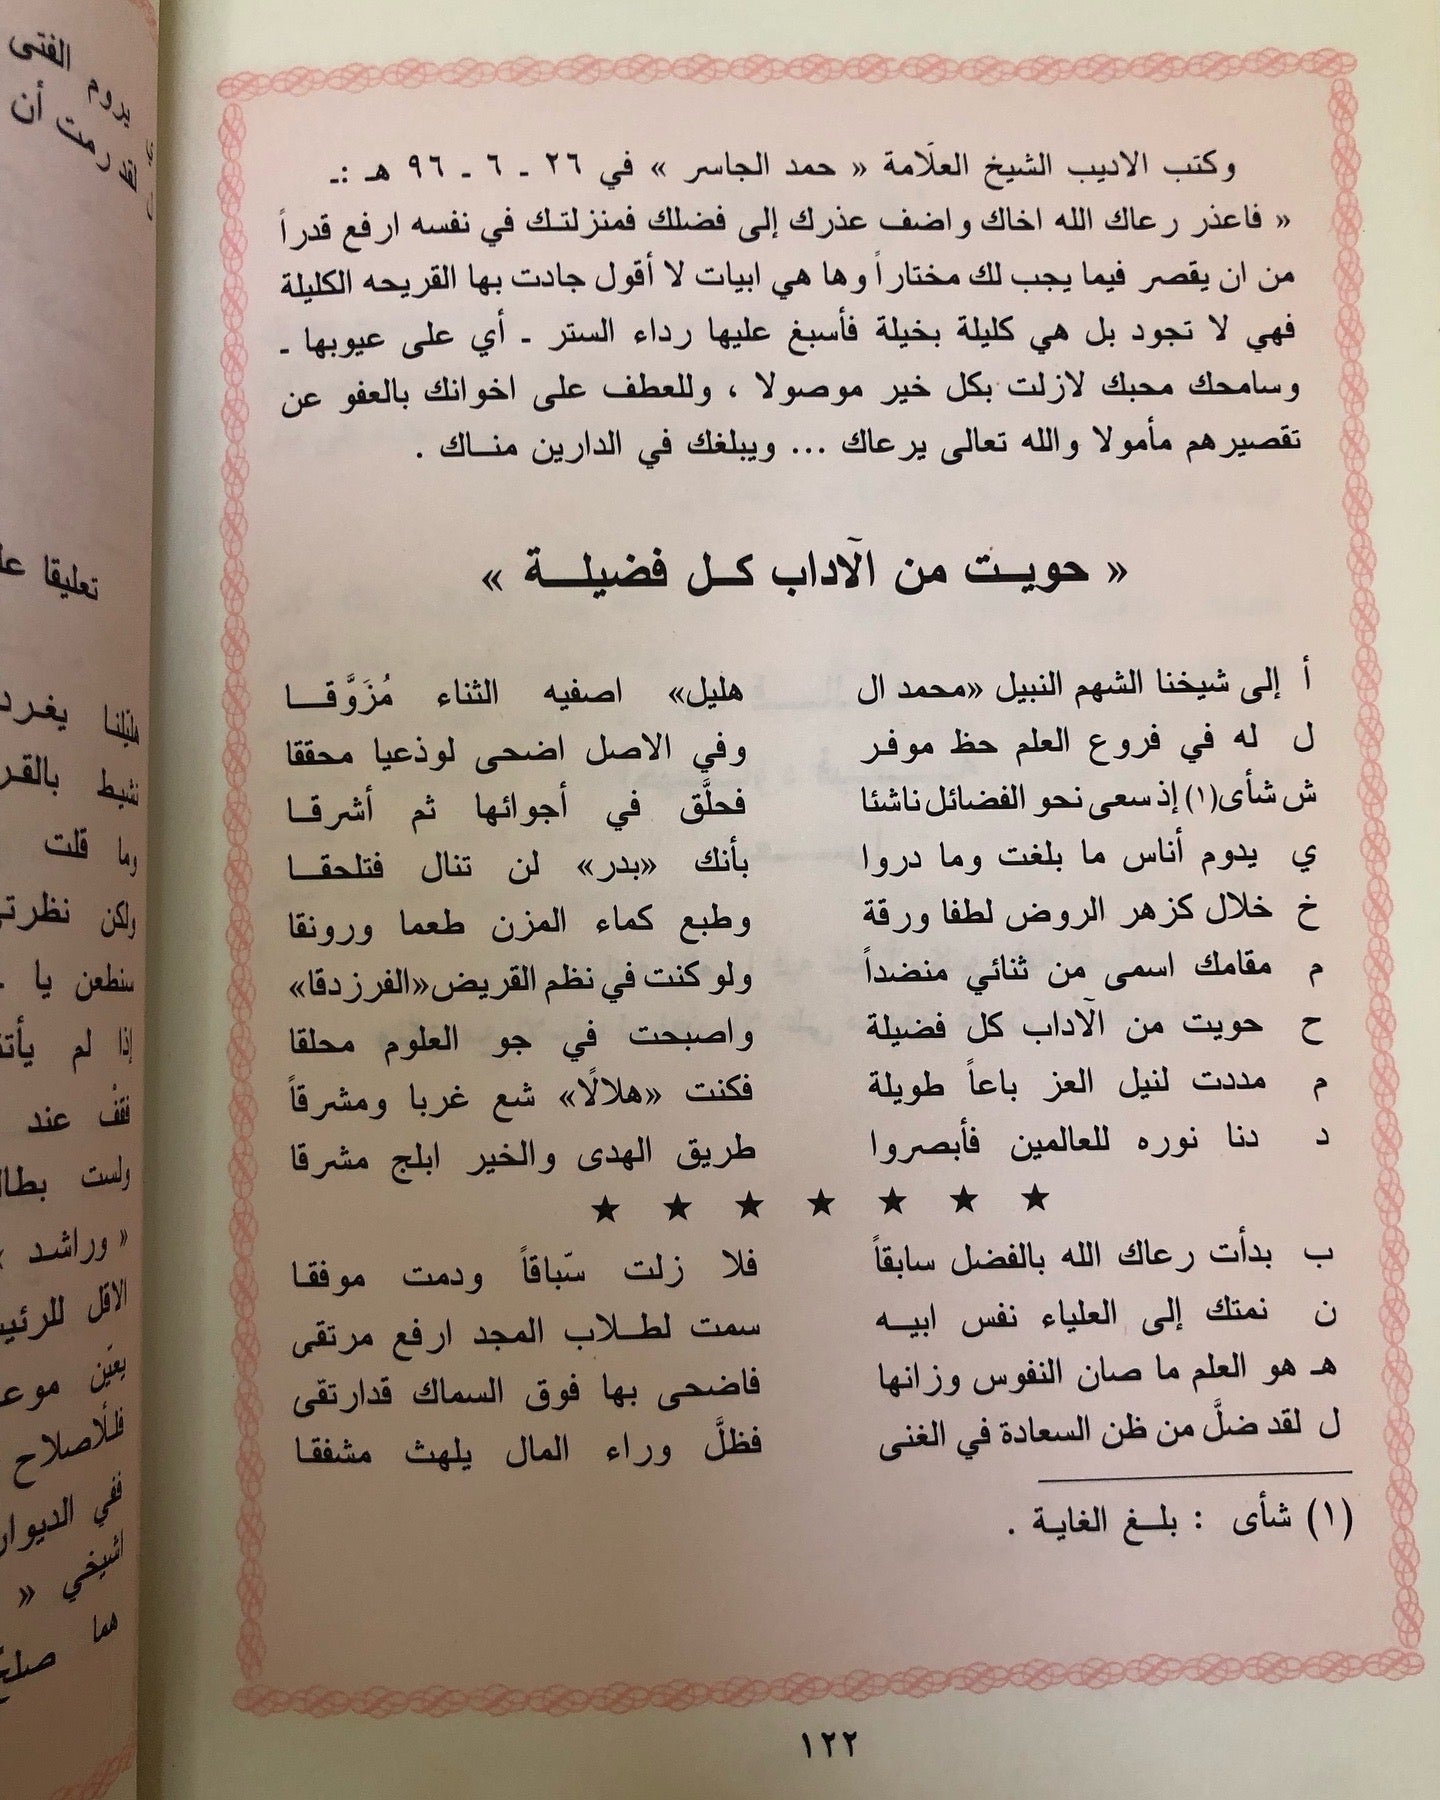 وكتب الاديب الشيخ العلّامة « حمد الجاسر » في ٢٦ ـ ٦ ـ ٩٦ هـ :ـ
« فاعذر رعاك الله اخاك واضف عذرك إلى فضلك فمنزلتك في نفسه ارفع قدراً
من ان يقصر فيما يجب لك مختاراً وها هي ابيات لا أقول جادت بها القريحه الكليلة
فهي لا تجود بل هي كليلة بخيلة فأسبغ عليها رداء الستر ـ أي على عيوبها ـ
وسامحك محبك لازلت بكل خير موصولا ، وللعطف على اخوانك بالعفو عن
تقصيرهم مأمولا والله تعالى يرعاك ... ويبلغك في الدارين مناك .
« حويت من الآداب كل فضيلة »
أ إلى شيخنا الشهم النبيل «محمد ال هليل» اصفيه الثناء مُزَوَّقا
ل له في فروع العلم حظ موفر وفي الاصل اضحى لوذعيا محققا
ش شأى(١) إذ سعى نحو الفضائل ناشئا فحلَّق في أجوائها ثم أشرقا
ي يدوم أناس ما بلغت وما دروا بأنك «بدر» لن تنال فتلحقا
خ خلال كزهر الروض لطفا ورقة وطبع كماء المزن طعما ورونقا
م مقامك اسمى من ثنائي منضداً ولو كنت في نظم القريض «الفرزدقا»
ح حويت من الآداب كل فضيلة واصبحت في جو العلوم محلقا
م مددت لنيل العز باعاً طويلة فكنت «هلالًا» شع غربا ومشرقاً
د دنا نوره للعالمين فأبصروا طريق الهدى والخير ابلج مشرقا
★ ★ ★ ★ ★ ★ ★
ب بدأت رعاك الله بالفضل سابقاً فلا زلت سّباقاً ودمت موفقا
ن نمتك إلى العلياء نفس ابيه سمت لطلاب المجد ارفع مرتقى
هـ هو العلم ما صان النفوس وزانها فاضحى بها فوق السماك قدارتقى
ل لقد ضلَّ من ظن السعادة في الغنى فظلَّ وراء المال يلهث مشفقا
(١) شأى : بلغ الغاية .
١٢٢
الفتى
يروم
لقد رمت أن
تعليقا
يغرد
وما قلت
ولكن
سنطعن يا
إذا لم
فقفْ عند
ولست
« وراشد »
الاقل
يعيّن
فللأصلاح
ففي
هما